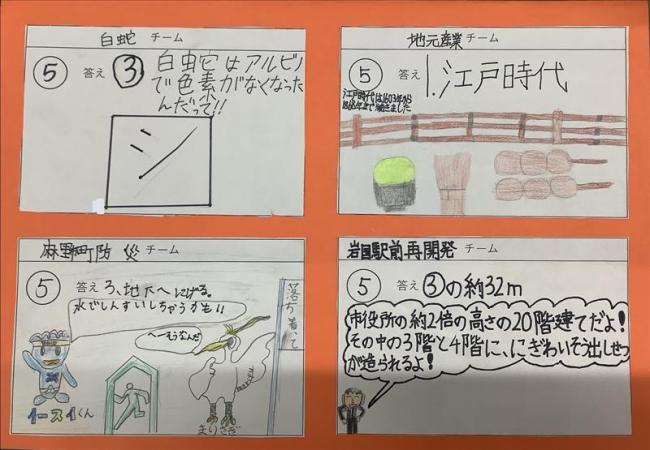 白蛇 チーム
⑤ 答え ③ 白蛇はアルビノ
で色素がなくなった
んだって!!
シ
地元産業 チーム
⑤ 答え 1.江戸時代
江戸時代は1603年から
1868年まで続きました
麻里布町防災 チーム
⑤ 答え 3、地下へにげる。
水でしんすいしちゃうかも!!
へーそうなんだ
落ち着いて
イースイくん
まりさぎ
岩国駅前再開発 チーム
⑤ 答え ③の約32m
市役所の約2倍の高さの20階建てだよ!
その中の3階と4階に、にぎわいそう出しせつ
が造られるよ!